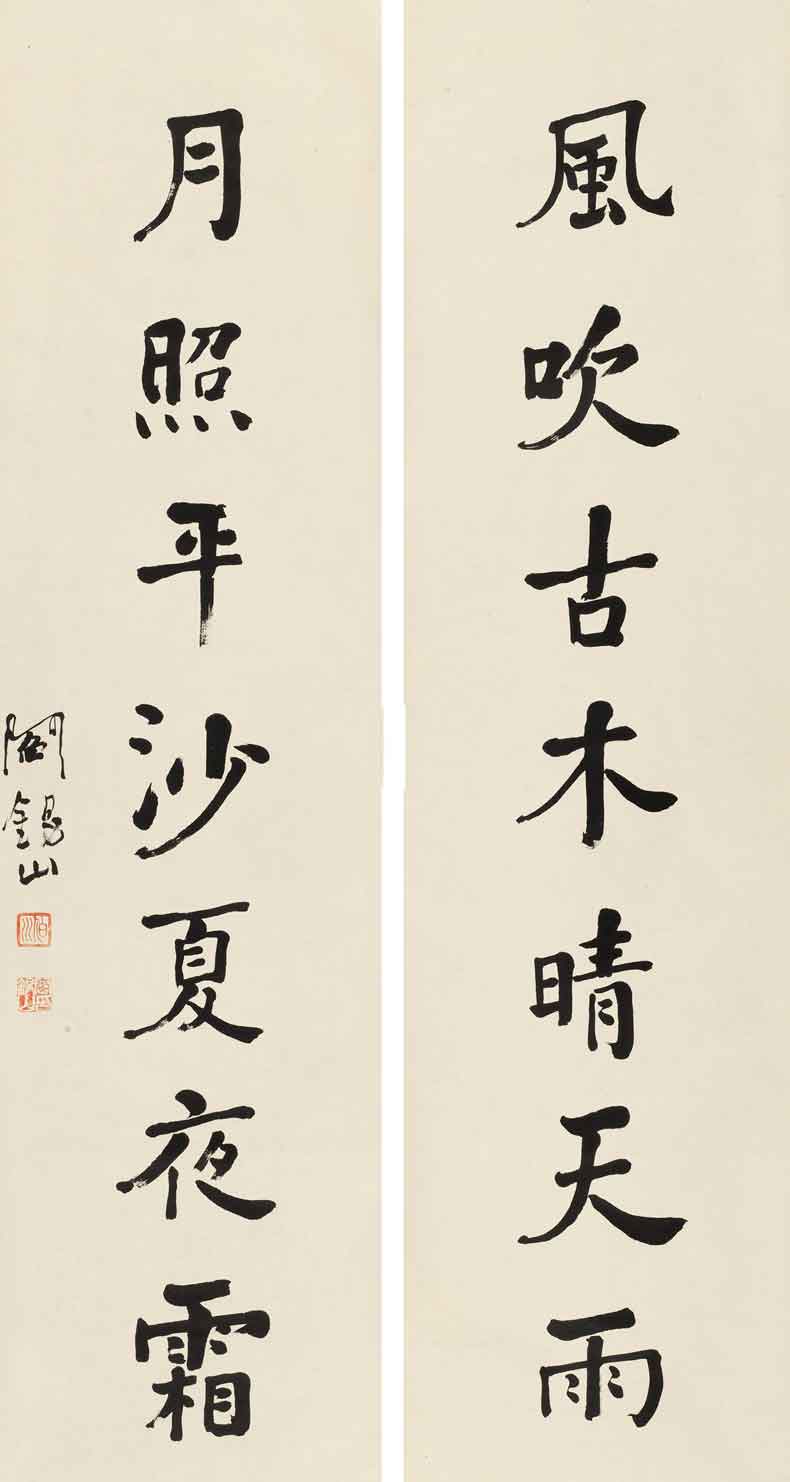 風吹古木晴天雨
月照平沙夏夜霜
閻錫山